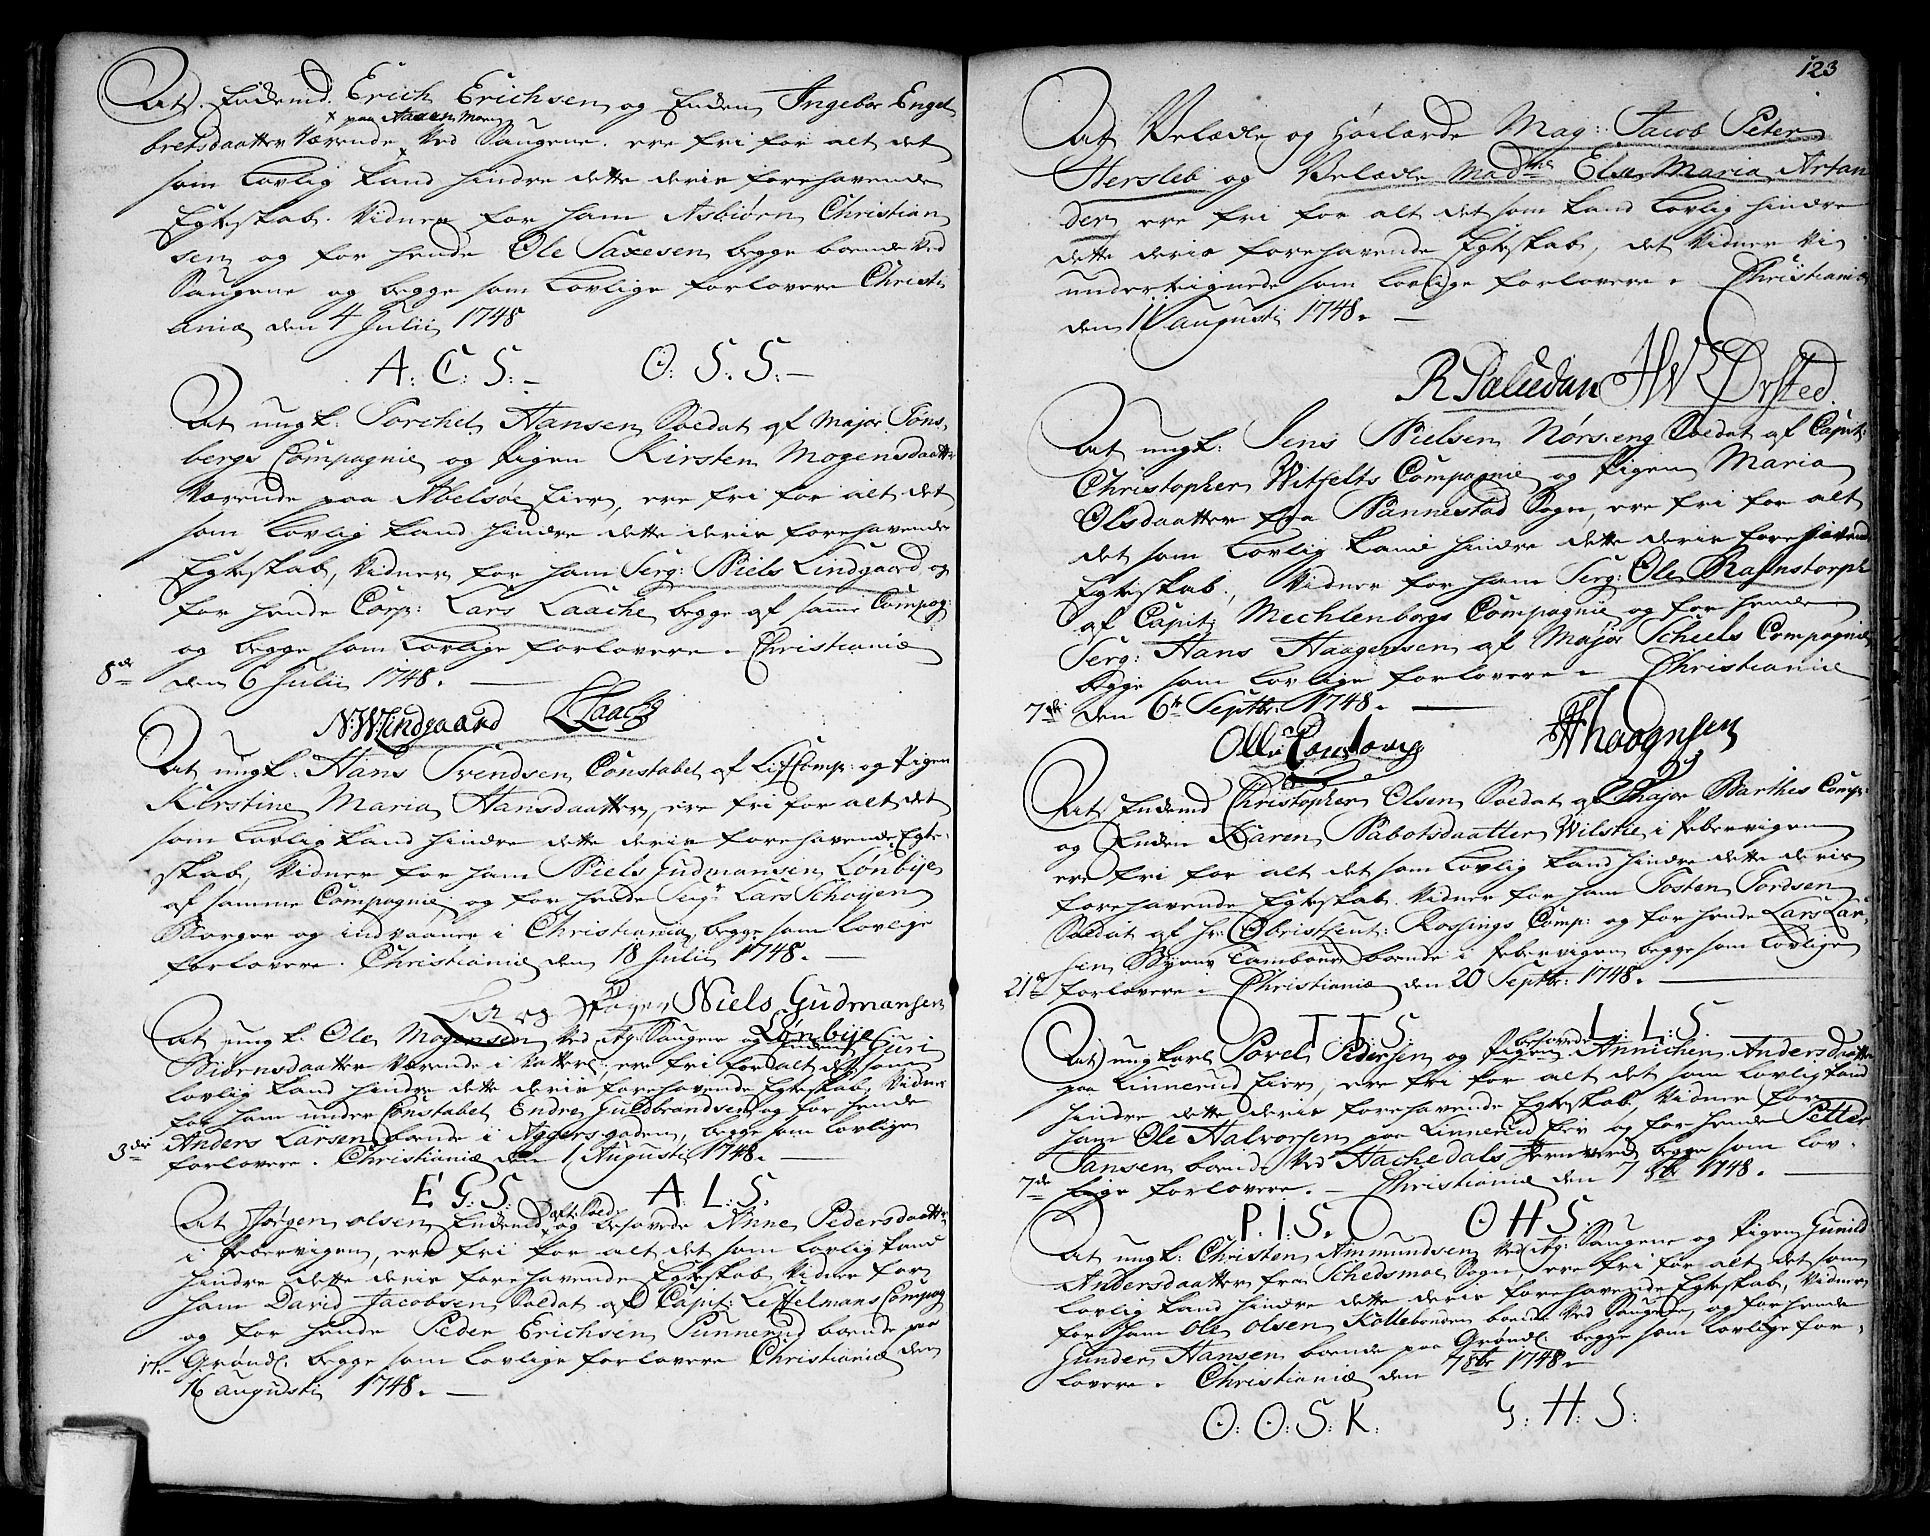 At Enkemd. Erich Erichsen og Enken Ingebor Engel
x paa Aaen Moen
bretsdaatter Værende x Ved Saugene. ere fri for alt det
som Lovlig kand hindre dette deris forehavende
Egteskab. Vidner for ham Asbiørn Christian
sen og for hende Ole Saxesen begge boende Ved
Saugene og begge som Lovlige forlovere Christi
aniæ den 4 Julii 1748
A: C: S: O: S: S:
At ungk: Torchel Hansen Soldat af Major Tons
bergs Compagnie og Pigen Kirsten Mogensdaatter
Værende paa Abelsøe Eier, ere fri for alt det
som Lovlig kand hindre dette deris forehavende
Egteskab, Vidner for ham Serg: Niels Lindgaard og
for hende Corp: Lars Laache begge af samme Compag:
og begge som Lovlige forlovere. Christianiæ
8de den 6 Julii 1748.
N: W: Lindgaard L Laache
At ungk: Hans Svendsen Constabel af Lif Comp: og Pigen
Kirstine Maria Hansdaatter, ere fri for alt det
som Lovlig kand hindre dette deris forehavende Egte-
skab, Vidner for ham Niels Gudmansen Lønbije
af samme Compagnie og for hende Serg: Lars Schøyen
Borger og indvaaner i Christiania, begge som Lovlige
forlovere. Christianiæ den 18 Julii 1748.
Niels Gudmansen
At ungk: Ole Mogensen Ved Ag: Saugene og Enken Guri
Lønbije
Biørnsdaatter Værende i Vatterl: ere fri for alt det som
Lovlig kand hindre dette deris forehavende Egteskab, Vidner
for ham under Constabel Endre Guldbrandsen og for hende
3die Anders Larsen boende i Aggersgaden, begge som Lovlige
forlovere. Christianiæ den 1 Augusti 1748.
E G: S: A: L: S:
At Jørgen Olsen Enkemd aft: Sold: og besovede Anne Pedersdaatter
i Pebervigen, ere fri for alt det som Lovlig kand
hindre dette deris forehavende Egteskab, Vidner for
ham David Jacobsen Soldat af Capit: Leffelmans Compag
og for hende Peder Erichsen Punnerud boende paa
17. Grønl: begge som Lovlige forlovere Christianiæ den
16 augusti 1748.
123
At Velædle og Høilærde Mag: Jacob Peter
Hersleb og Velædle Madme Else Maria Arfan
den ere fri for alt det som kand Lovlig hindre
dette deris forehavende Egteskab, det Vidner Vi
undertegnede som Lovlige forlovere. Christianiæ
den 11 augusti 1748.
R Paludan HW Ørsted.
At ungk: Jens Nielsen Nørseng Soldat af Capit:
Christopher Witfelts Compagnie og Pigen Maria
Olsdaatter fra Nannestad Sogn, ere fri for alt
det som Lovlig kand hindre dette deris forehavende
Egteskab, Vidner for ham Serg: Ole Rafnstorph
af Capit: Mechlenborgs Compagnie og for hende
Serg: Hans Haagensen af Major Scheels Compagnie
begge som Lovlige forlovere. Christianiæ
7de den 6te Septbr. 1748.
HHaagnsen
At Enkemd Christopher Olsen Soldat af Major Barthes Comp:
og Enken Karen Nabotsdaatter Wilske i Pebervigen
ere fri for alt det som Lovlig kand hindre dette deris
forehavende Egteskab. Vidner for ham Tosten Tordsen
Soldat af Hr: Obristleut: Rossings Comp: og for hende Lars Lar
sen Byens Tambour boende i Pebervigen begge som Lovlige
21de forlovere. Christianiæ den 20 Septbr: 1748.
T: T: S L: L: S.
At ungkarl Povel Pedersen og besovede Pigen Annichen Andersdaatter
paa Linnerud Eier, ere fri for alt det som Lovlig kand
hindre dette deris forehavende Egteskab, Vidner for
ham Ole Halvorsen paa Linnerud Eier og for hende Petter
Jansen boende Ved Hachedals Jernverch begge som Lov-
7de lige forlovere. Christianiæ den 7 8br 1748.
P. I: S. O H S.
At ungk: Christen Ammundsen Ved Ag: Saugene og Pigen Gunild
Andersdaatter fra Schedsmoe Sogn, ere fri for alt det som
Lovlig kand hindre dette deris forehavende Egteskab, Vidner
for ham Ole Olsen Kollebonden boende Ved Saugene, og for hende
Gunder Hansen boende paa Grønl: begge som Lovlige for-
lovere. Christianiæ den 7 8br 1748.
O: O: S: K: G: H: S: